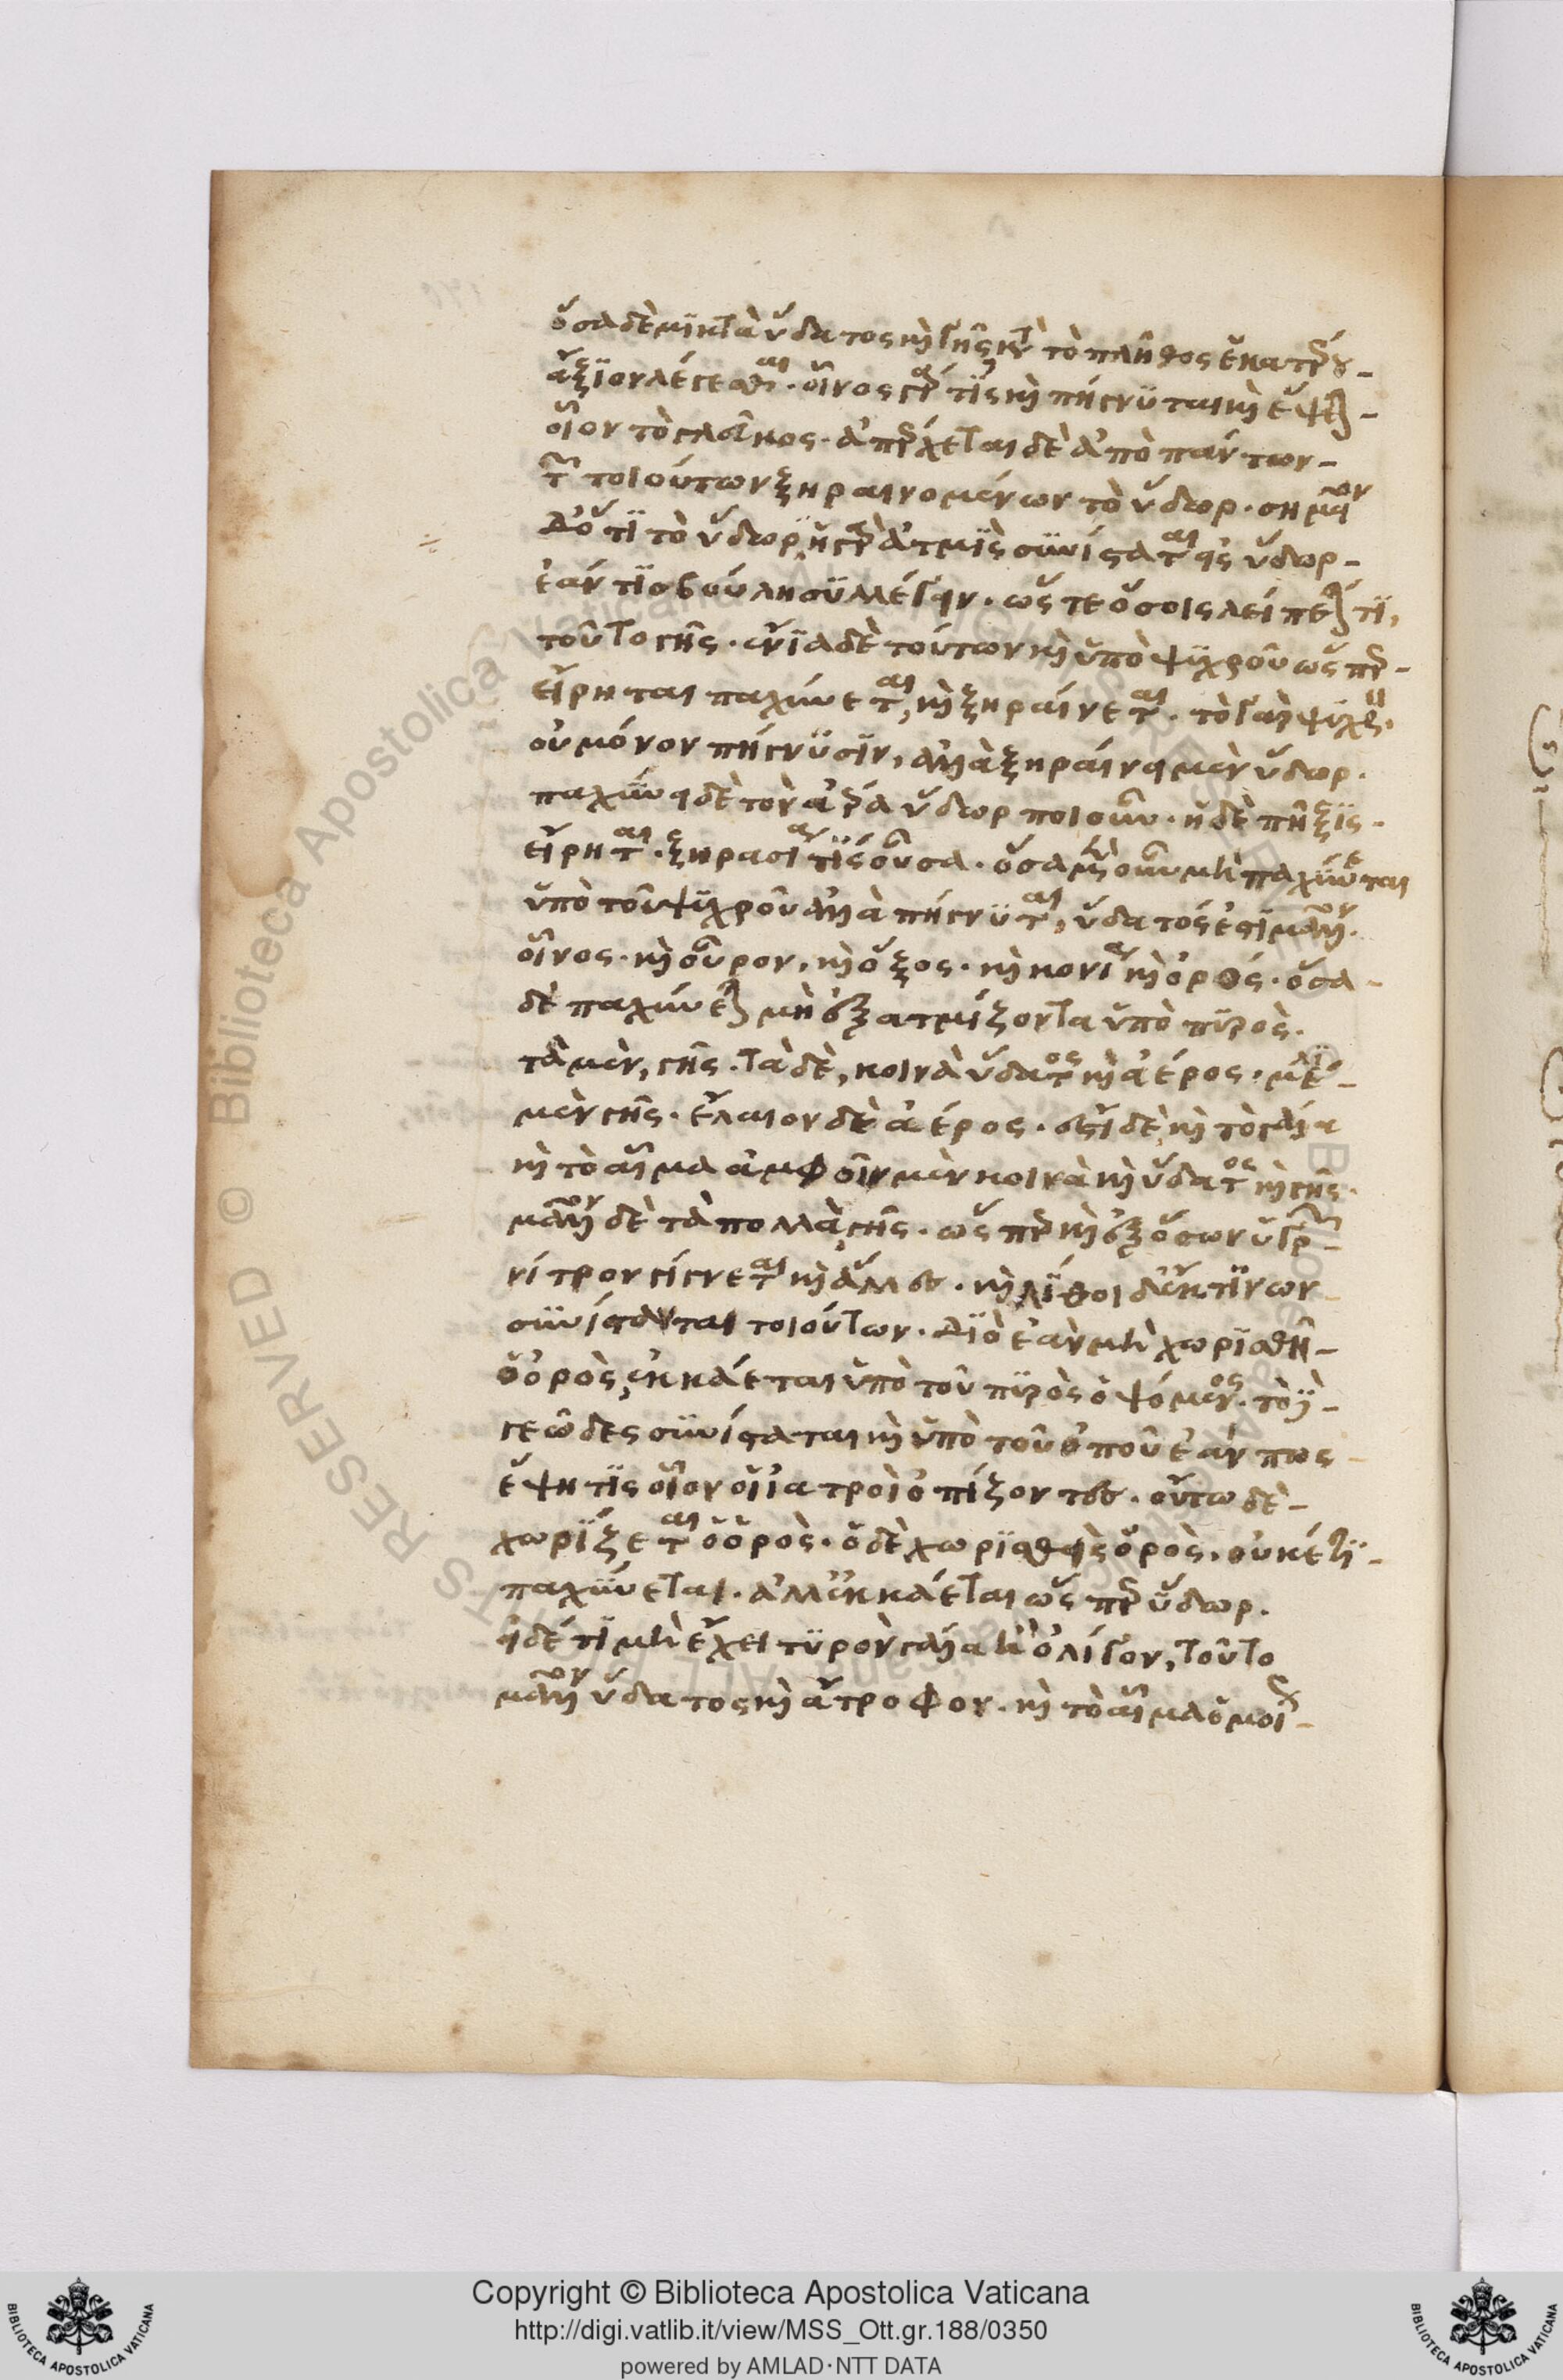 ὅσα δὲ μικτὰ ὕδατος καὶ γῆς κατὰ τὸ πλῆθος ἑκατέρου
ἄξιον λέγεσθαι· οἶνος γάρ τις καὶ πήγνυται καὶ ἕψεται
οἷον τὸ γλεῦκος· ἀπέρχεται δὲ ἀπὸ πάντων
τῶν τοιούτων ξηραινομένων τὸ ὕδωρ· σημεῖον
δ' ὅτι τὸ ὕδωρ, ἡ γὰρ ἀτμὶς συνίσταται εἰς ὕδωρ
ἐάν τισ βούλη συλλέγειν· ὥστε ὅσοις λείπεταί τι,
τοῦτο γῆς· ἔνια δὲ τούτων καὶ ὑπὸ ψυχροῦ ὥσπερ
εἴρηται παχύνεται, καὶ ξηραίνεται· τὸ γὰρ ψυχρὸν·
οὐ μόνον πήγνυσιν, ἀλλὰ ξηραίνει μὲν ὕδωρ·
παχύνει δὲ τὸν ἀέρα ὕδωρ ποιοῦν· ἡ δὲ πῆξις
εἴρηται· ξηρασία τίς οὖσα· ὅσα μὲν οὖν μὴ παχύνεται
ὑπὸ τοῦ ψυχροῦ ἀλλὰ πήγνυται, ὕδατός ἐστι μᾶλλον·
οἶνος· καὶ οὖρον, καὶ ὄξος· καὶ κονία καὶ ὀρός· ὅσα
δὲ παχύνεται μὴ ἐξατμίζοντα ὑπὸ πυρὸς·
τὰ μὲν, γῆς· τὰ δὲ, κοινὰ ὕδατος καὶ ἀέρος· μέλι
μὲν γῆς· ἔλαιον δὲ ἀέρος· ἐστὶ δὲ καὶ τὸ γάλα
καὶ τὸ αἷμα ἀμφοῖν μὲν κοινὰ καὶ ὕδατος καὶ γῆς·
μᾶλλον δὲ τὰ πολλὰ γῆς· ὥσπερ καὶ ἐξ ὅσων ὑγρῶν
νίτρον γίγνεται καὶ ἅλες· καὶ λίθοι δ' ἔκ τινων
συνίστανται τοιούτων· διὸ ἐὰν μὴ χωρισθῆ
ὁ ὀρὸς, ἐκκάεται ὑπὸ τοῦ πυρὸς ὁ ἑψόμενος· τὸ
γεῶδες συνίσταται καὶ ὑπὸ τοῦ ὀποῦ ἐάν πως
ἕψη τις οἷον οἱ ἰατροὶ ὀπίζοντες· οὕτω δὲ
χωρίζεται ὁ ὀρὸς· ὁ δὲ χωρισθεὶς ὀρὸς, οὐκέτι
παχύνεται· ἀλλ' ἐκκάεται ὥσπερ ὕδωρ·
εἰ δέ τι μὴ ἔχει τυρὸν γάλα ἢ ὀλίγον, τοῦτο
μᾶλλον ὕδατος καὶ ἄτροφον· καὶ τὸ αἷμα ὁμοίως
Copyright © Biblioteca Apostolica Vaticana
http://digi.vatlib.it/view/MSS_Ott.gr.188/0350
powered by AMLAD·NTT DATA